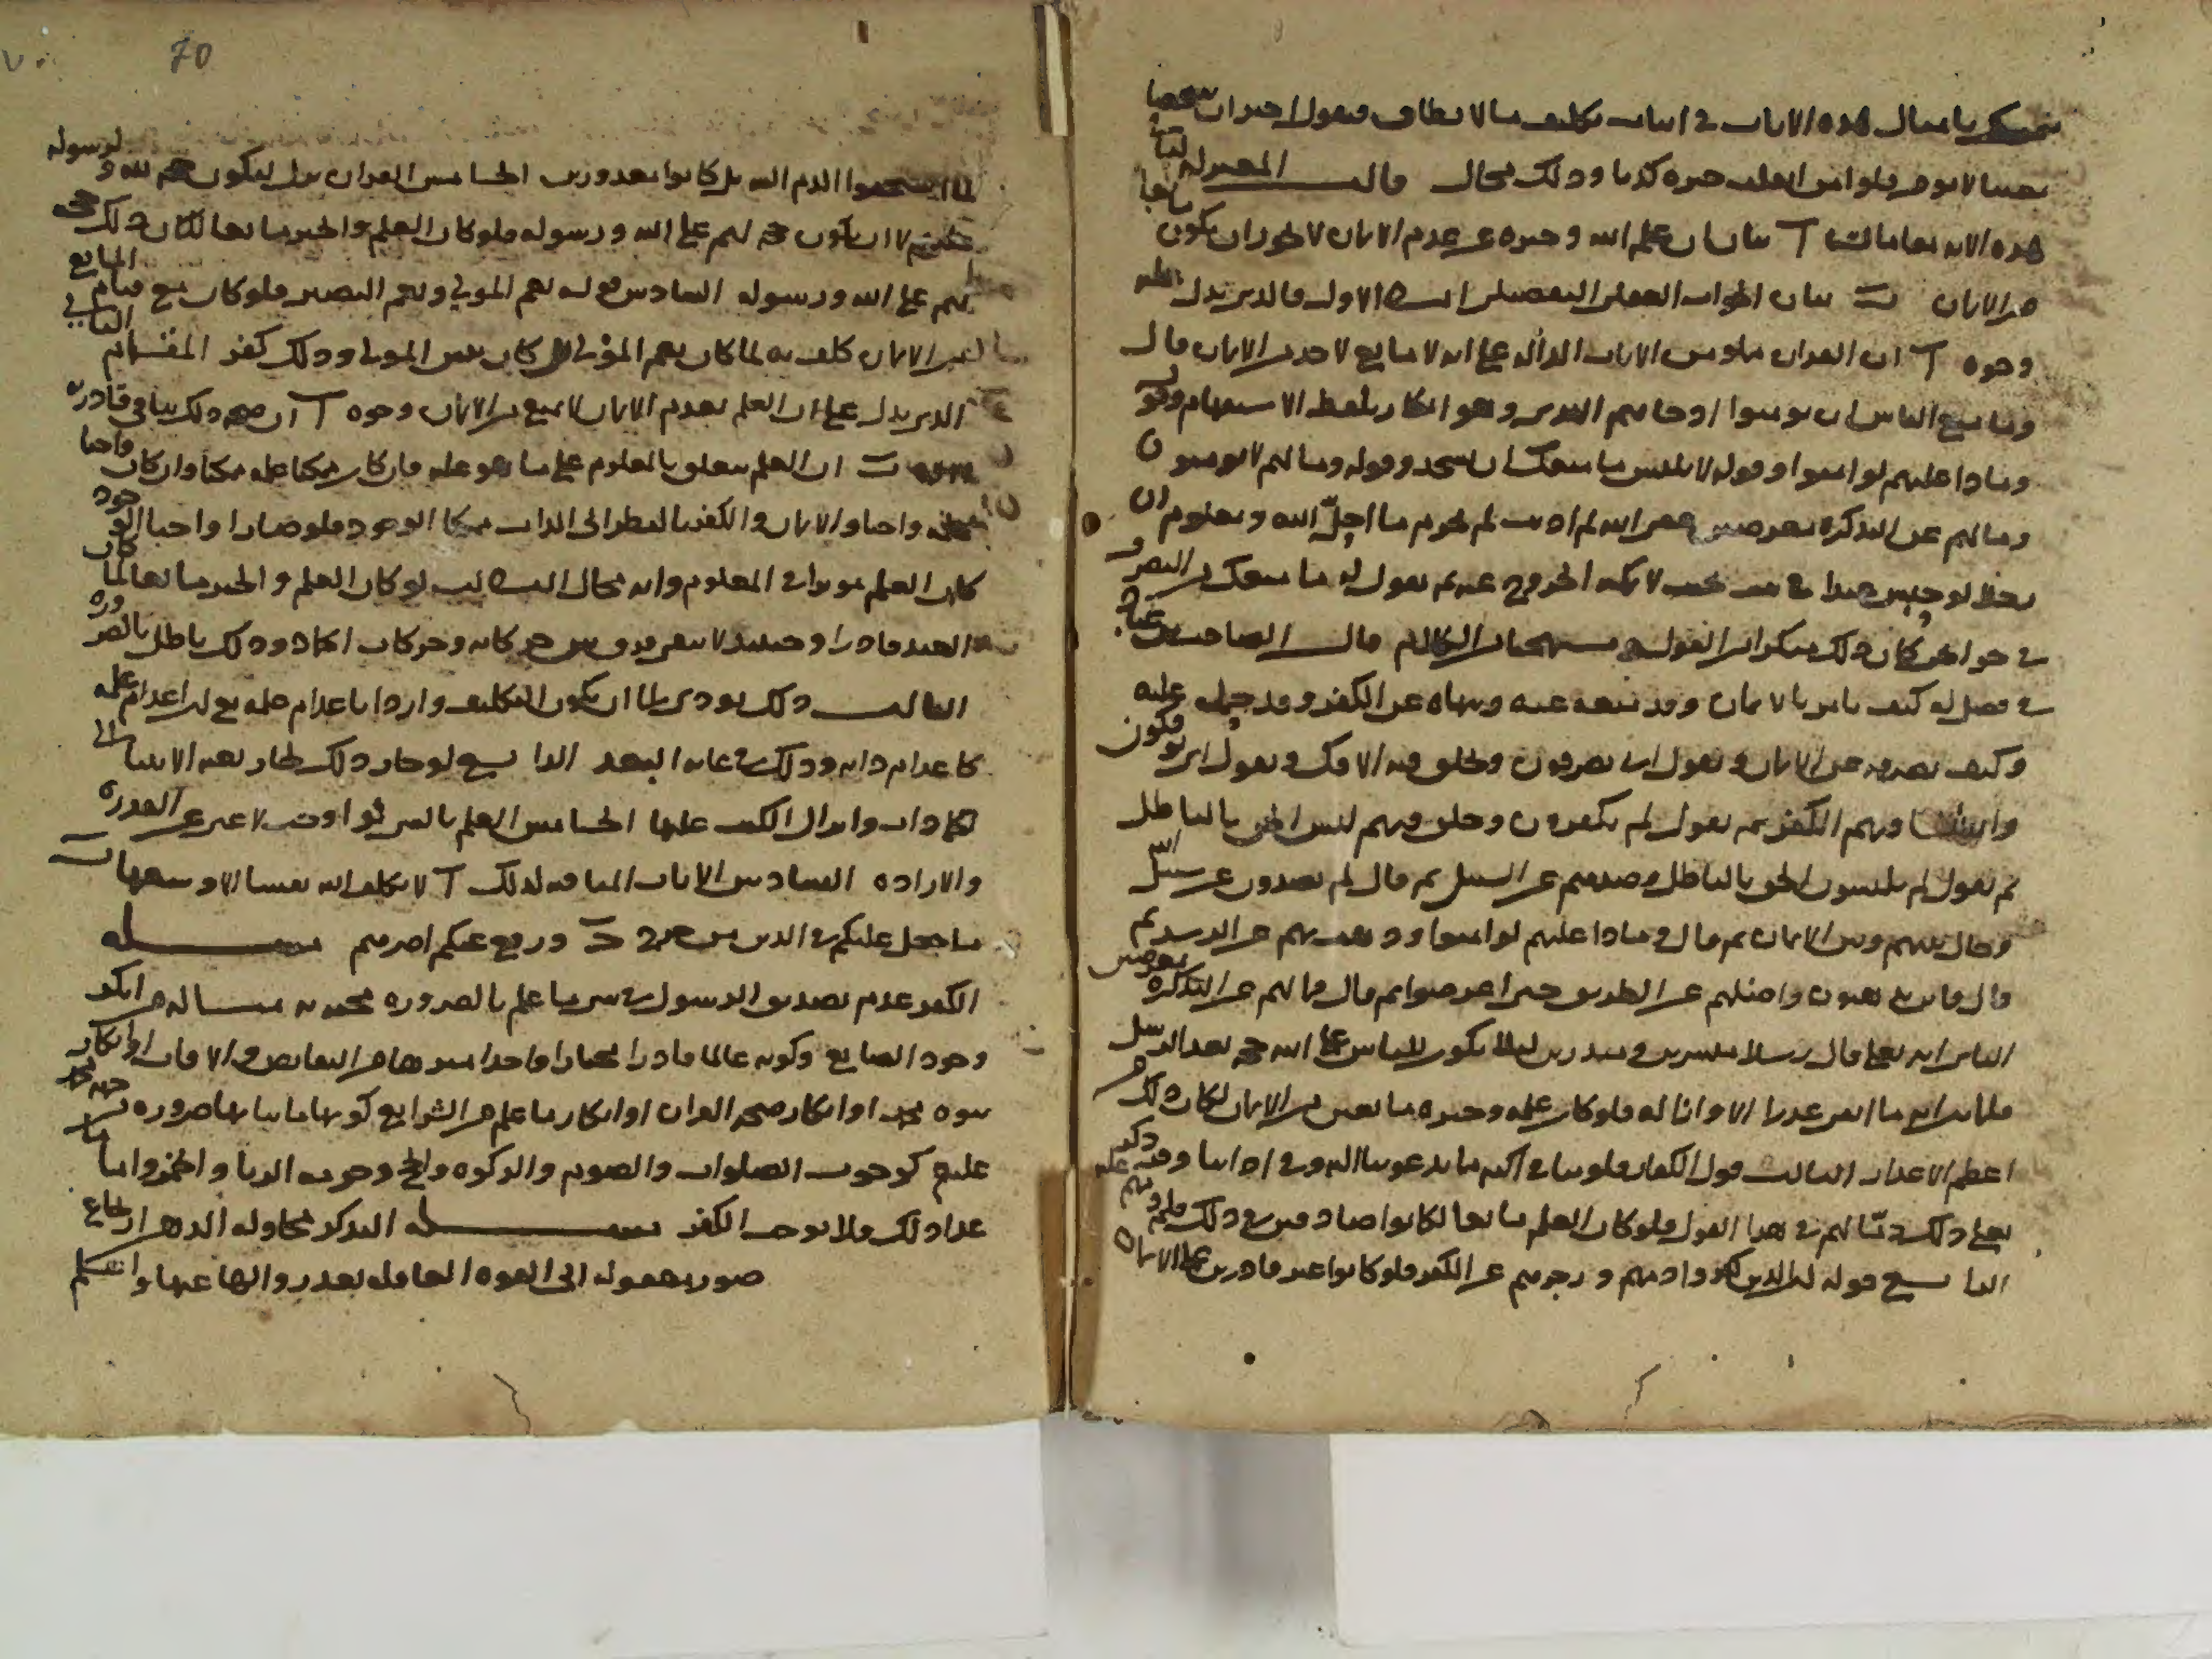 يتمسك بامثال هذه الايات في اثبات تكليف ما لا يطاق فنقول اخبر ان شخصا
معينا لا يؤمن فلو امن انقلب خبره كذبا وذلك محال قالت المعتزلة لنا في
هذه الاية مقامات آ بيان ان علم الله وخبره عن عدم الايمان لا يجوز ان يكون مانعا
من الايمان ب بيان الجواب العقلي التفصيلي اما الاول فالذي يدل عليه
وجوه آ ان القران مملو من الايات الدالة على انه لا مانع لاحد من الايمان قال
وما منع الناس ان يؤمنوا اذ جاءهم الهدى وهو انكار بلفظ الاستفهام وقوله
وماذا عليهم لو امنوا وقوله لابليس ما منعك ان تسجد وقوله وما لهم لا يؤمنون
وما لهم عن التذكرة معرضين عفى الله عنك لم اذنت لهم لم تحرم ما احل الله ومعلوم ان
رجلا لو حبس عبدا في بيت بحيث لا يمكنه الخروج عنه ثم يقول له ما منعك من التصرف
في حوائجي كان ذلك منكرا من القول مستهجنا من الكلام قال الصاحب بن عباد
في فصل له كيف يامر بالايمان وقد منعه عنه وينهاه عن الكفر وقد حمله عليه
وكيف يصرفه عن الايمان ويقول انى تصرفون ويخلق فيه الافك ويقول انى يؤفكون
وانشا فيهم الكفر ثم يقول لم تكفرون وخلق فيهم لبس الحق بالباطل
ثم يقول لم تلبسون الحق بالباطل وصدهم عن السبيل ثم قال لم تصدون عن سبيل الله
وحال بينهم وبين الايمان ثم قال وماذا عليهم لو امنوا وذهب بهم عن الرشد ثم
قال فاين تذهبون واضلهم عن الطريق حتى اعرضوا ثم قال فما لهم عن التذكرة معرضين
الثاني انه تعالى قال رسلا مبشرين ومنذرين لئلا يكون للناس على الله حجة بعد الرسل
فلما بين انه ما ابقى عذرا الا وازاله فلو كان علمه وخبره مانعين من الايمان لكان ذلك من
اعظم الاعذار الثالث قول الكفار قلوبنا في اكنة مما تدعونا اليه وفي اذاننا وقر ذكر
تعالى ذلك ذما لهم في هذا القول فلو كان العلم مانعا لكانوا صادقين في ذلك فلم ذمهم عليه
الرابع قوله ان الذين كفروا ذمهم وزجرهم عن الكفر فلو كانوا غير قادرين على الايمان
لما استحقوا الذم البتة بل كانوا معذورين الخامس القران نزل ليكون حجة لله ولرسوله
عليهم لا ان يكون حجة لهم على الله ورسوله فلو كان العلم والخبر مانعا لكان ذلك حجة
لهم على الله ورسوله السادس قوله نعم المولى ونعم النصير فلو كان مع قيام المانع
من الايمان كلف به لما كان نعم المولى بل كان بئس المولى وذلك كفر المقام الثاني
الذي يدل على ان العلم بعدم الايمان لا يمنع من الايمان وجوه آ ان صحة ذلك ينافي قادرية
ب ان العلم يتعلق بالمعلوم على ما هو عليه فان كان ممكنا علمه ممكنا وان كان واجبا
علمه واجبا والايمان والكفر بالنظر الى الذات ممكنا الوجود فلو صارا واجبا الوجود
كان العلم مؤثرا في المعلوم وانه محال الثالث لو كان العلم والخبر مانعا لما كان
العبد قادرا وحينئذ لا يبقى فرق بين حركاته وحركات الجماد وذلك باطل بالضرورة
الثالث ذلك يؤدي الى ان يكون التكليف واردا باعدام علمه لان اعدام علمه
كاعدام ذاته وذلك في غاية البعد الرابع لو جاز ذلك لجاز بعثة الانبياء الى
الجمادات وانزال الكتب عليها الخامس العلم بالشيء لو اوجب لاغنى عن القدرة
والارادة السادس الايات النافية لذلك آ لا يكلف الله نفسا الا وسعها ب
ما جعل عليكم في الدين من حرج ج ويضع عنهم اصرهم مسئلة
الكفر عدم تصديق الرسول في شيء مما علم بالضرورة مجيئه به مثاله من انكر
وجود الصانع وكونه عالما قادرا مختارا واحدا منزها من النقائص والافات او انكار
نبوة محمد او انكار صحة القران او انكار ما علم من الشرائع كونها ثابتا بها ضرورة
عليه كوجوب الصلوات والصوم والزكوة والحج وحرمة الربا والخمر واما ما
عدا ذلك فلا يوجب الكفر مسئلة التذكر محاولة الذهن استرجاع
صور معقولة الى القوة العاقلة بعد زوالها عنها والتكلم